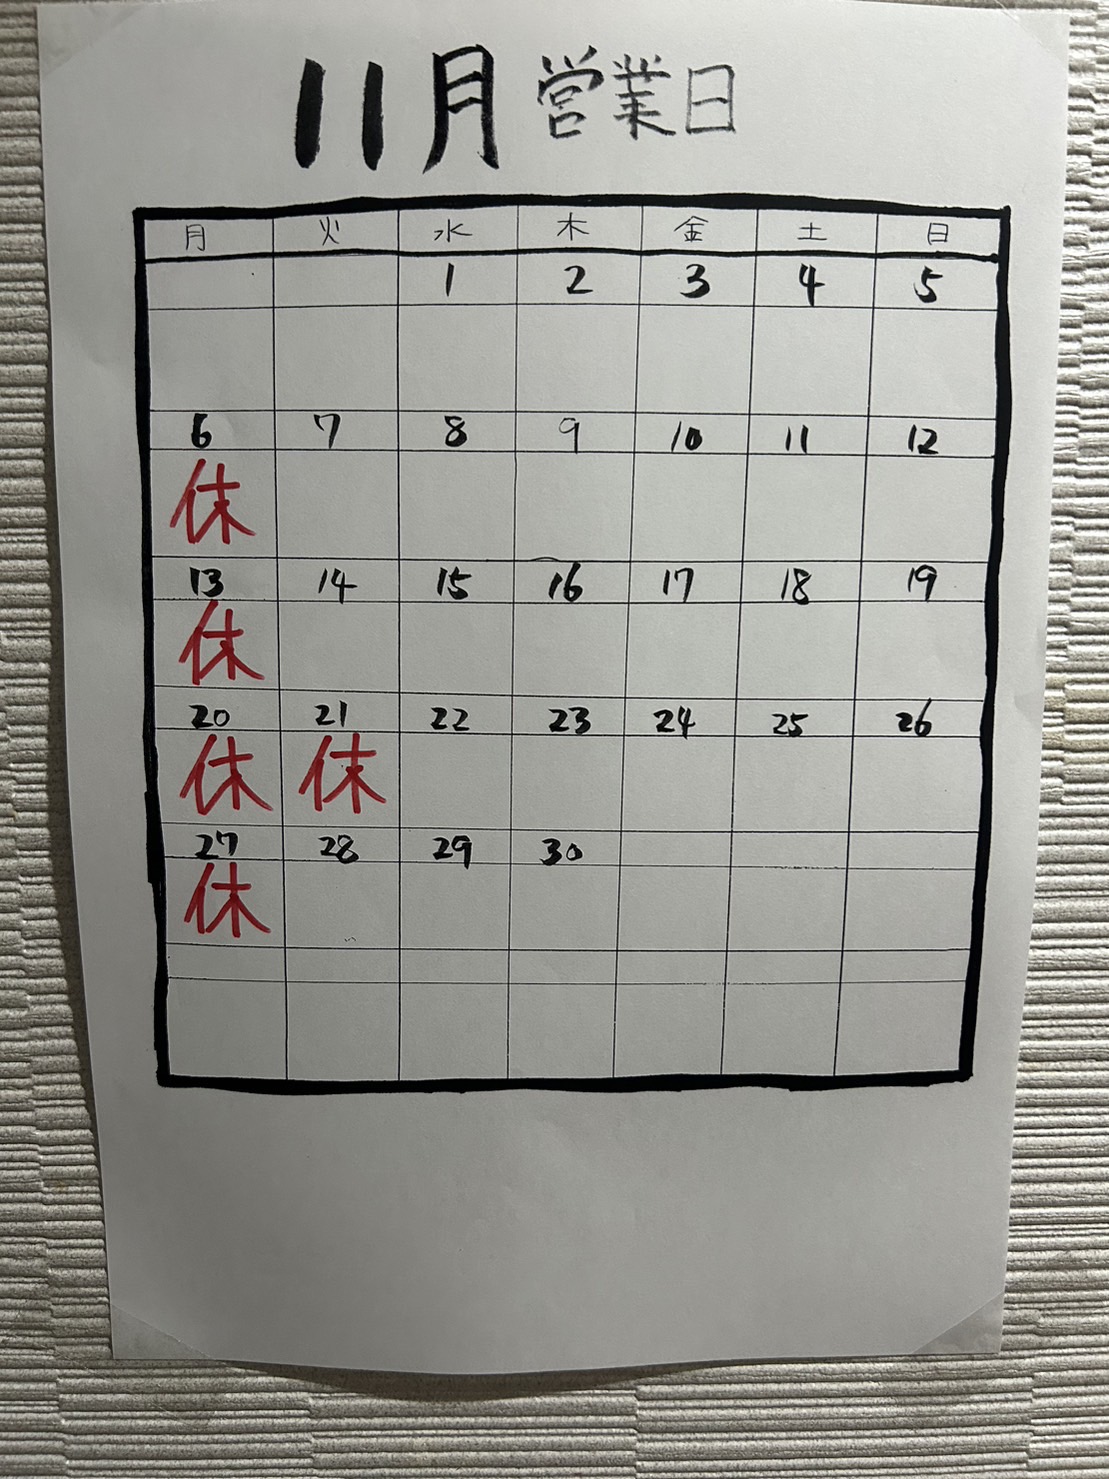 11月営業日
月 火 水 木 金 土 日
1 2 3 4 5
6 7 8 9 10 11 12
休
13 14 15 16 17 18 19
休
20 21 22 23 24 25 26
休 休
27 28 29 30
休